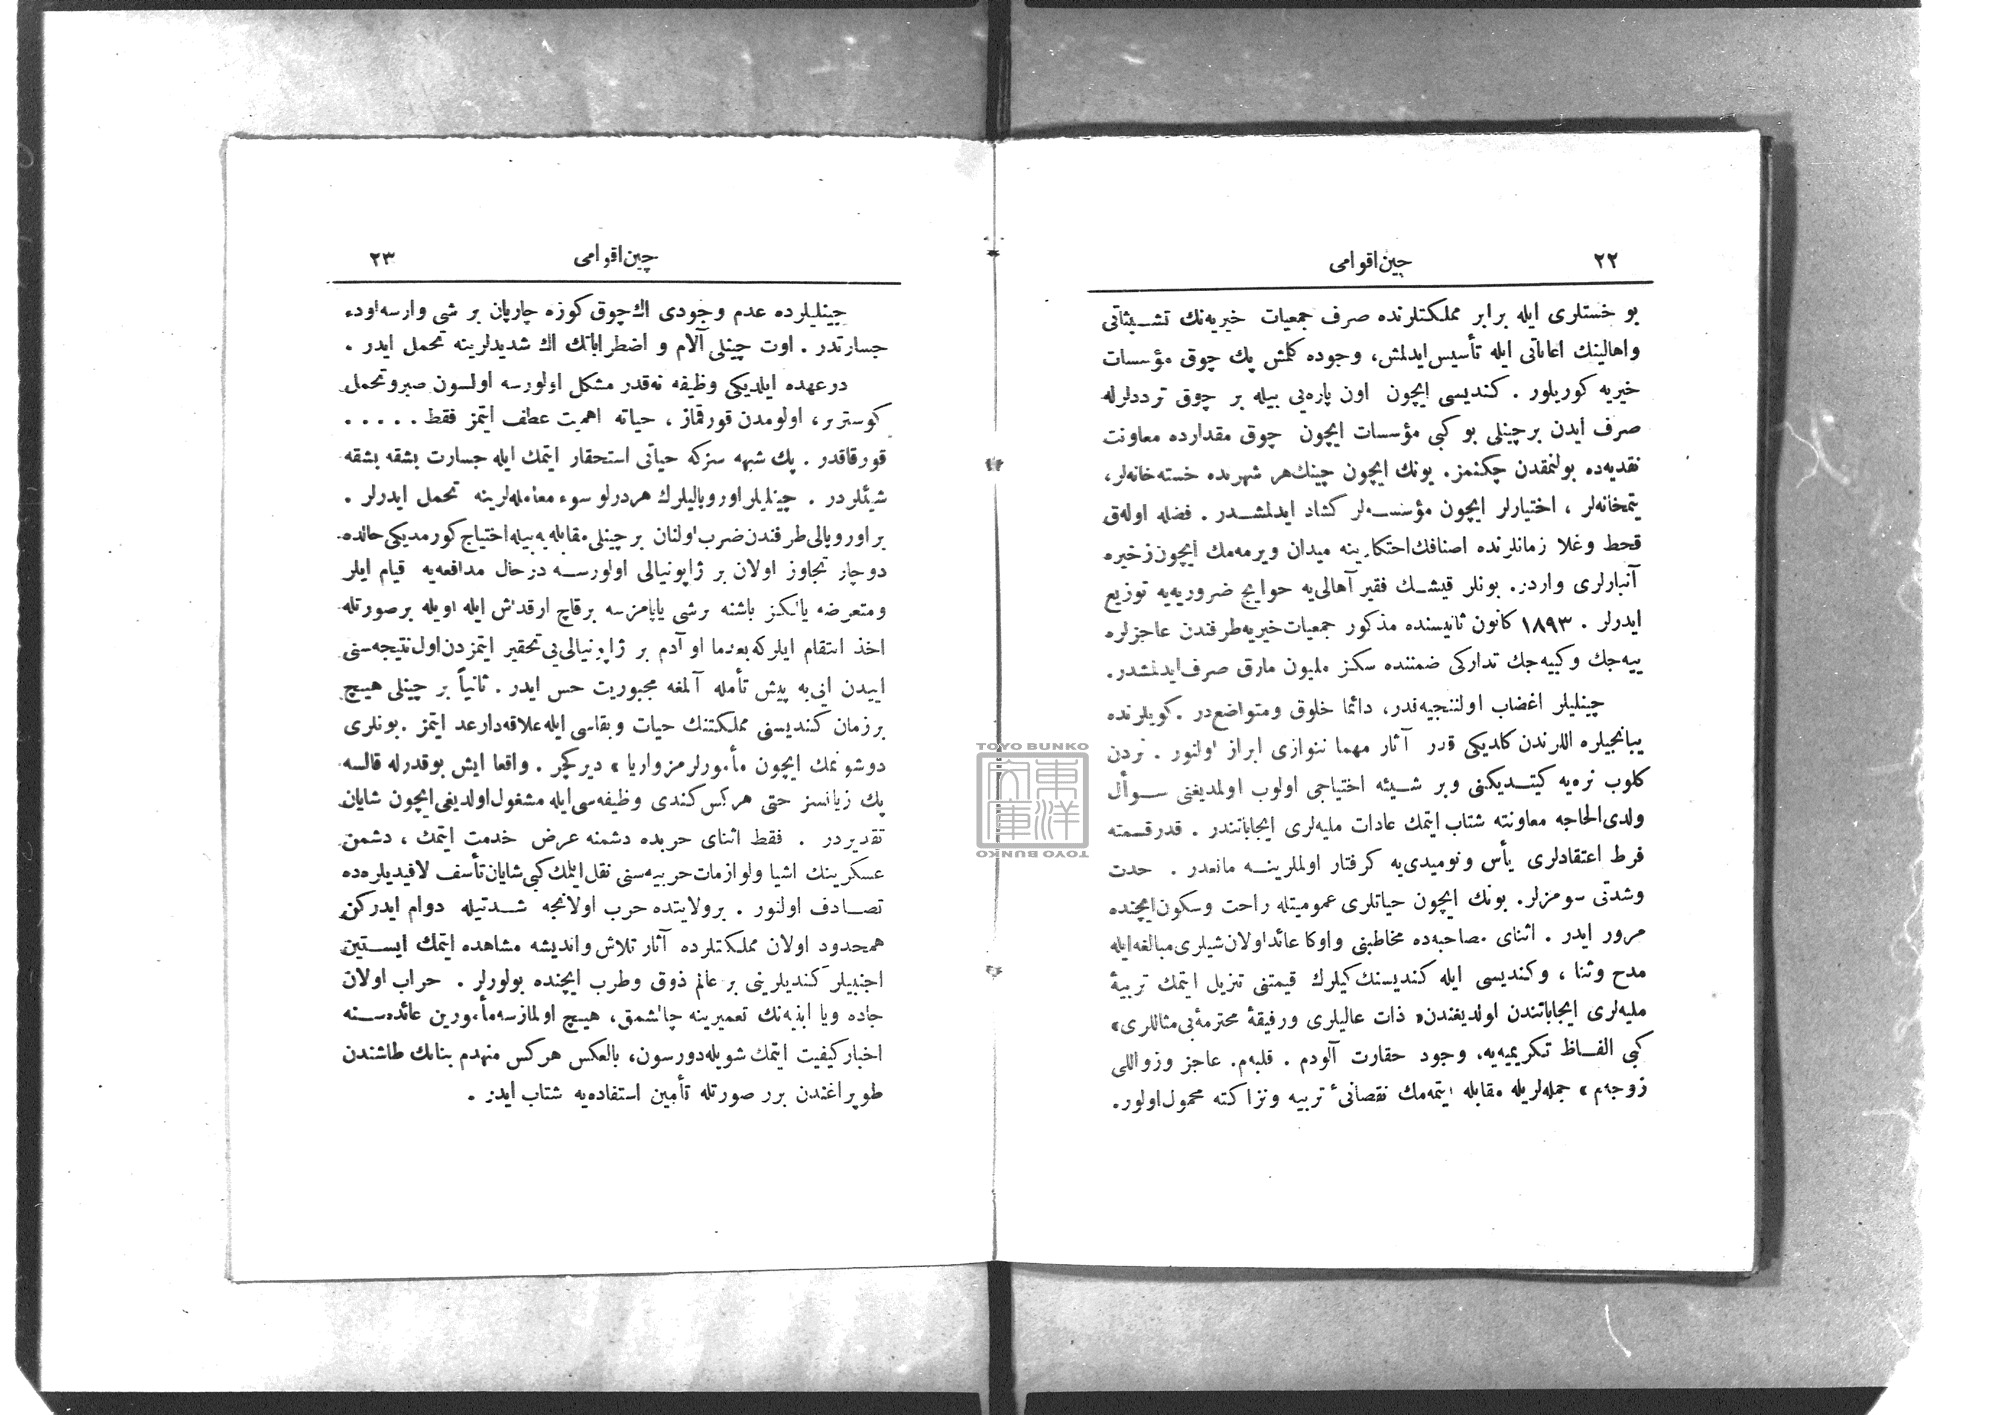 ٢٢
چين اقوامی
بو خستلری ايله برابر مملكتلرنده صرف جمعيات خيريه‌نك تشبثاتی
واهالينك اعاناتی ايله تأسيس ايدلمش، وجوده كلمش پك چوق مؤسسات
خيريه كوريلور . كنديسی ايچون اون پاره‌يی بيله بر چوق ترددلرله
صرف ايدن برچينلی بو كبی مؤسسات ايچون چوق مقدارده معاونت
نقديه‌ده بولنمقدن چكنمز. بونك ايچون چينك هر شهرنده خسته خانه‌لر،
يتمخانه‌لر ، اختيارلر ايچون مؤسسه‌لر كشاد ايدلمشدر . فضله اوله‌ق
قحط وغلا زمانلرنده اصنافك احتكارينه ميدان ويرمه‌مك ايچون زخيره
آنبارلری واردر. بونلر قيشك فقير آهالی‌يه حوايج ضروريه‌يه توزيع
ايدرلر . ١٨٩٣ كانون ثانيسنده مذكور جمعيات خيريه طرفندن عاجزلره
ييه‌جك وكييه‌جك تداركی ضمننده سكز مليون مارق صرف ايدلمشدر.
چينليلر اغضاب اولننجيه‌قدر، دائما خلوق ومتواضع‌در . كويلرنده
يبانجيلره اللرندن كلديكی قدر آثار مهما ننوازی ابراز اولنور . نردن
كلوب نره‌يه كيتديكنی وبر شيئه احتياجی اولوب اولمديغنی سوأل
ولدی‌الحاجه معاونته شتاب ايتمك عادات مليه‌لری ايجاباتندر . قدرقسمته
فرط اعتقادلری يأس ونوميدی‌يه كرفتار اولملرينه مانعدر . حدت
وشدتی سومزلر. بونك ايچون حياتلری عموميتله راحت وسكون ايچنده
مرور ايدر . اثنای مصاحبه‌ده مخاطبنی واوكا عائد اولان شيلری مبالغه ايله
مدح وثنا ، وكنديسی ايله كنديسنك كيلرك قيمتنی تنزيل ايتمك تربيهٔ
مليه‌لری ايجاباتندن اولديغندن« ذات عاليلری ورفيقهٔ محترمهٔ بی‌مثاللری»
كبی الفاظ تكريميه‌يه، وجود حقارت آلودم . قلبه‌م. عاجز وزواللی
زوجه‌م » جمله‌لريله مقابله ايتمه‌مك نقصانیٔ تربيه ونزاكته محمول اولور.
چين اقوامی
٢٣
چينليلرده عدم وجودی اك چوق كوزه چارپان بر شی وارسه اوده
جسارتدر . اوت چينلی آلام و اضطراباتك اك شديدلرينه تحمل ايدر .
درعهده ايلديكی وظيفه نه‌قدر مشكل اولورسه اولسون صبروتحمل
كوسترير، اولومدن قورقماز ، حياته اهميت عطف ايتمز فقط . . . . .
قورقاقدر . پك شبهه سزكه حياتی استحقار ايتمك ايله جسارت بشقه بشقه
شيئلردر . چينليلر اوروپاليلرك هردرلو سوء معامله‌لرينه تحمل ايدرلر .
بر اوروپالی طرفندن ضرب اولنان بر چينلی مقابله‌يه بيله احتياج كورمديكی حالده
دوچار تجاوز اولان بر ژاپونيالی اولورسه درحال مدافعه‌يه قيام ايلر
ومتعرضه يالكز باشنه برشی ياپامزسه برقاچ ارقداش ايله اويله برصورتله
اخذ انتقام ايلركه بعدما او آدم بر ژاپونيالی‌يی تحقير ايتمزدن اول نتيجه‌سنی
اييدن ايی‌يه پيش تأمله آلمغه مجبوريت حس ايدر . ثانياً بر چينلی هيچ
برزمان كنديسنی مملكتنك حيات وبقاسی ايله علاقه‌دارعد ايتمز . بونلری
دوشونمك ايچون مأمورلرمز واريا » ديركچر . واقعا ايش بوقدرله قالسه
پك زيانسز حتی هركس كندی وظيفه‌سی‌ايله مشغول‌اولديغی ايچون شايان
تقديردر . فقط اثنای حربده دشمنه عرض خدمت ايتمك ، دشمن
عسكرينك اشيا ولوازمات حربيه‌سنی نقل ايتمك كبی شايان تأسف لاقيديلره‌ده
تصادف اولنور . برولايتده حرب اولانجه شدتيله دوام ايدركن
همحدود اولان مملكتلرده آثار تلاش وانديشه مشاهده ايتمك ايستين
اجنبيلر كنديلرينی بر عالم ذوق وطرب ايچنده بولورلر . خراب اولان
جاده ويا ابنيه‌نك تعميرينه چالشمق، هيچ اولمازسه مأمورين عائده‌سنه
اخبار كيفيت ايتمك شويله‌دورسون، بالعكس هركس منهدم بنانك طاشندن
طوپراغندن برر صورتله تأمين استفاده‌يه شتاب ايدر .
TOYO BUNKO
東洋文庫
TOYO BUNKO